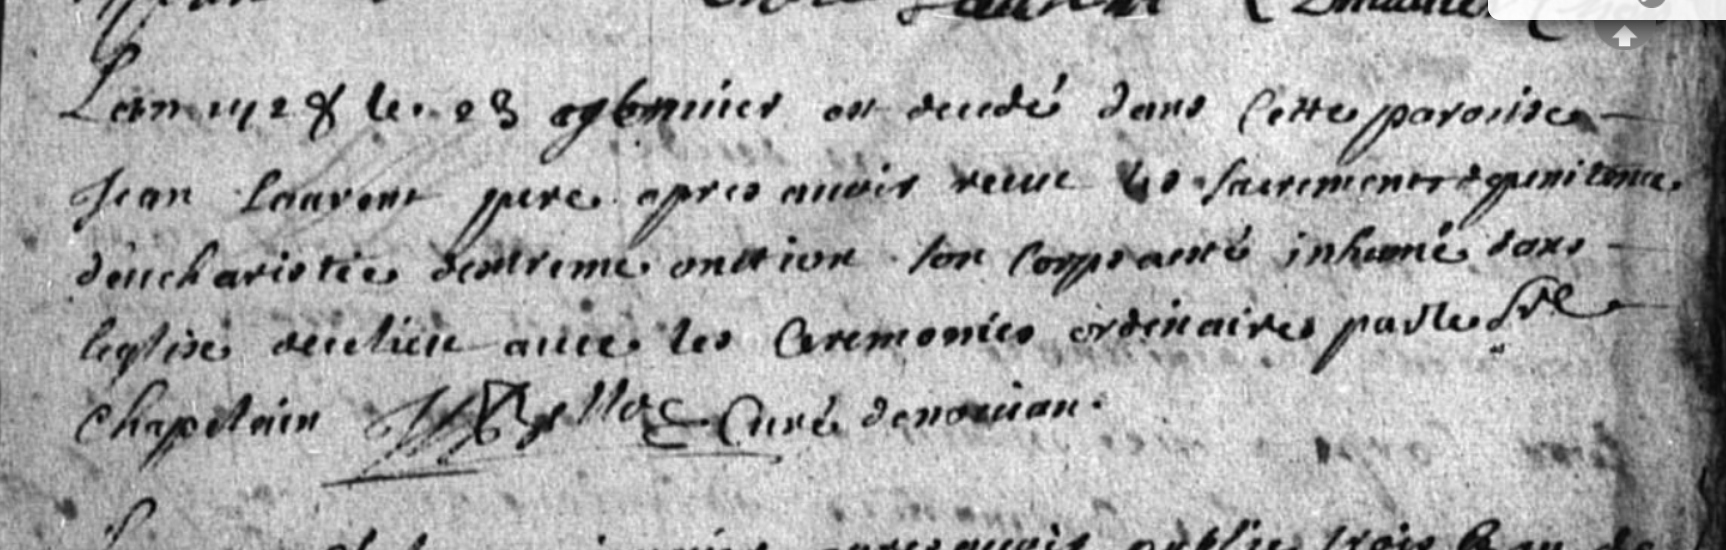 Laurent
Lan 1728 le 23 est decedé dans Cette paroisse
Jean Laurent pere apres auoir receu les sacrements de penitence
deucharistie dextreme onction son corps a esté inhumé dans
leglise du lieu auec les Ceremonies ordinaires par le Sre
Chapelain Curé de
apres auoir publie trois Ban de